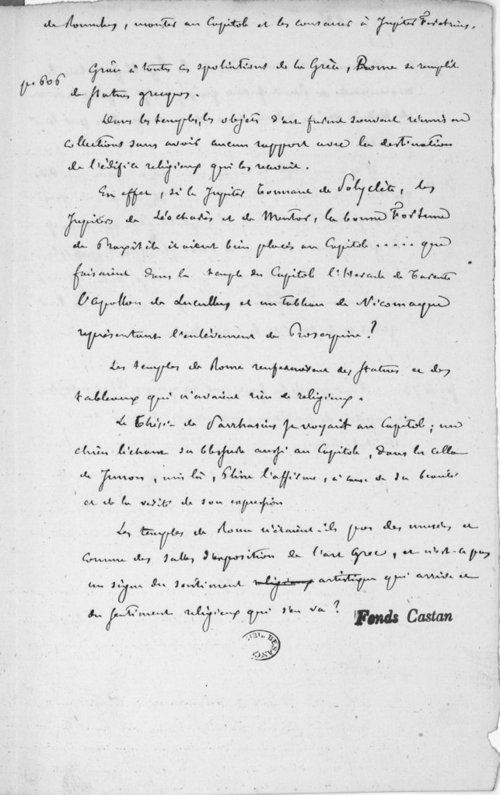 de Romulus, monter au Capitole et les consacrer à Jupiter Férétrius.
p. 606
Grâce à toutes ces spoliations de la Grèce, Rome se remplit
de statues grecques.
Dans les temples, les objets d'art furent souvent réunis en
collections sans avoir aucun rapport avec la destination
de l'édifice religieux qui les recevait.
En effet, si le Jupiter tonnant de Polyclète, les
Jupiters de Léocharès et de Mentor, la bonne Fortune
de Praxitèle étaient bien placés au Capitole ..... que
faisaient dans le temple du Capitole l'Hercule de Tarente
l'Apollon de Lucullus et un tableau de Nicomaque
représentant l'enlèvement de Proserpine?
Les temples de Rome renfermaient des statues et des
tableaux qui n'avaient rien de religieux.
Le Thésée de Parrhasius se voyait au Capitole; un
chien léchant sa blessure aussi au Capitole, dans la cella
de Junon, mis là, Pline l'affirme, à cause de sa beauté
et de la vérité de son expression
Les temples de Rome n'étaient-ils pas des musées et
comme des salles d'exposition de l'art Grec, et n'est-ce pas
un signe du sentiment religieux artistique qui arrive et
du sentiment religieux qui s'en va?
Fonds Castan